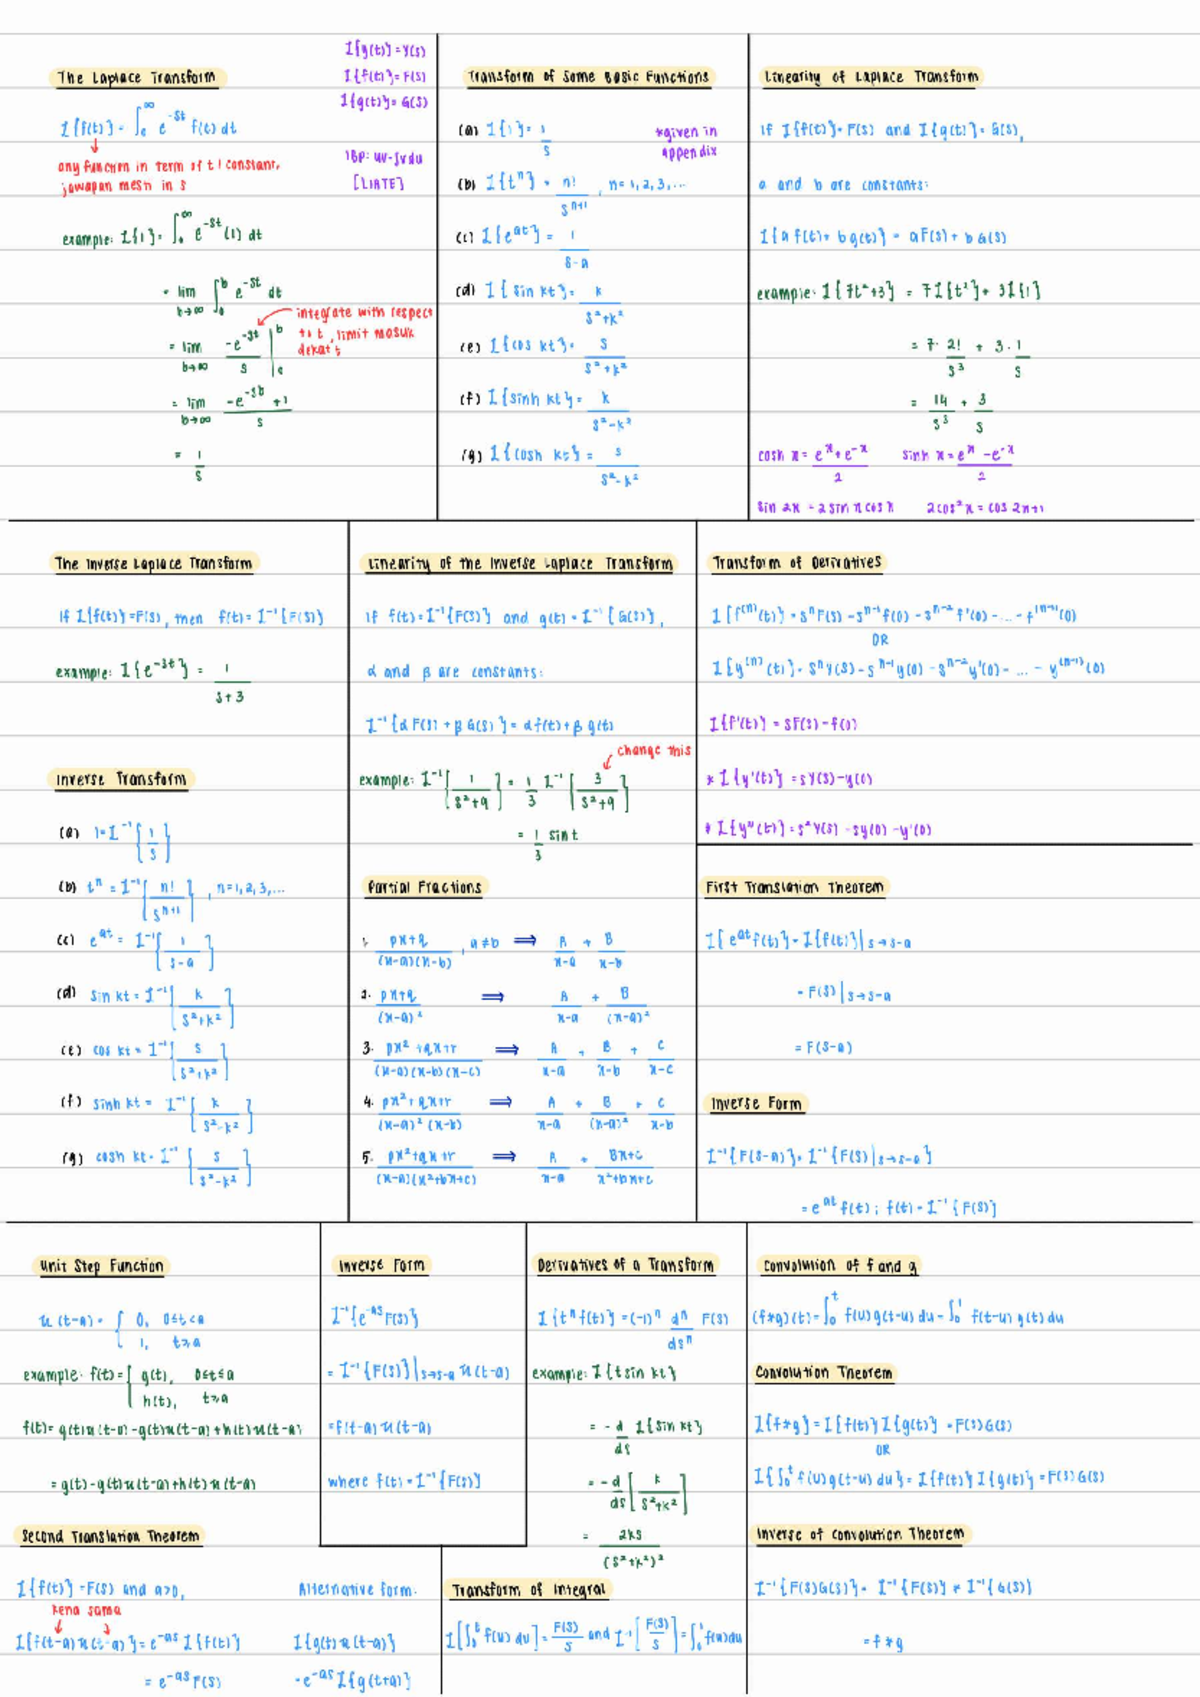 The Laplace Transform
ℒ{y(t)} = Y(s)
ℒ{f(t)} = F(s)
ℒ{g(t)} = G(s)
ℒ{f(t)} = ∫₀^∞ e^(-st) f(t) dt
any function in term of t / constant,
jawapan mesti in s
IBP: uv-∫vdu
[LIATE]
example: ℒ{1} = ∫₀^∞ e^(-st) (1) dt
= lim b→∞ ∫₀^b e^(-st) dt
integrate with respect
to t, limit masuk
dekat t
= lim b→∞ -e^(-st)/s |₀^b
= lim b→∞ (-e^(-sb) + 1)/s
= 1/s
Transform of Some Basic Functions
(a) ℒ{1} = 1/s
*given in
appendix
(b) ℒ{t^n} = n!/s^(n+1), n = 1, 2, 3, ...
(c) ℒ{e^(at)} = 1/(s-a)
(d) ℒ{sin kt} = k/(s²+k²)
(e) ℒ{cos kt} = s/(s²+k²)
(f) ℒ{sinh kt} = k/(s²-k²)
(g) ℒ{cosh kt} = s/(s²-k²)
Linearity of Laplace Transform
if ℒ{f(t)} = F(s) and ℒ{g(t)} = G(s),
a and b are constants:
ℒ{a f(t) + b g(t)} = aF(s) + bG(s)
example: ℒ{7t²+3} = 7ℒ{t²} + 3ℒ{1}
= 7 · 2!/s³ + 3 · 1/s
= 14/s³ + 3/s
cosh x = (e^x + e^(-x))/2 sinh x = (e^x - e^(-x))/2
sin 2x = 2 sin x cos x 2cos²x = cos 2x+1
The Inverse Laplace Transform
If ℒ{f(t)} = F(s), then f(t) = ℒ⁻¹{F(s)}
example: ℒ{e^(-3t)} = 1/(s+3)
Inverse Transform
(a) 1 = ℒ⁻¹{1/s}
(b) t^n = ℒ⁻¹{n!/s^(n+1)}, n = 1, 2, 3, ...
(c) e^(at) = ℒ⁻¹{1/(s-a)}
(d) sin kt = ℒ⁻¹{k/(s²+k²)}
(e) cos kt = ℒ⁻¹{s/(s²+k²)}
(f) sinh kt = ℒ⁻¹{k/(s²-k²)}
(g) cosh kt = ℒ⁻¹{s/(s²-k²)}
Linearity of the Inverse Laplace Transform
If f(t) = ℒ⁻¹{F(s)} and g(t) = ℒ⁻¹{G(s)},
α and β are constants:
ℒ⁻¹{αF(s) + βG(s)} = αf(t) + βg(t)
change this
example: ℒ⁻¹{1/(s²+9)} = 1/3 ℒ⁻¹{3/(s²+9)}
= 1/3 sin t
Partial Fractions
1. (px+q)/((x-a)(x-b)), a≠b ⟹ A/(x-a) + B/(x-b)
2. (px+q)/(x-a)² ⟹ A/(x-a) + B/(x-a)²
3. (px²+qx+r)/((x-a)(x-b)(x-c)) ⟹ A/(x-a) + B/(x-b) + C/(x-c)
4. (px²+qx+r)/((x-a)²(x-b)) ⟹ A/(x-a) + B/(x-a)² + C/(x-b)
5. (px²+qx+r)/((x-a)(x²+bx+c)) ⟹ A/(x-a) + (Bx+C)/(x²+bx+c)
Transform of Derivatives
ℒ{f^(n)(t)} = s^n F(s) - s^(n-1) f(0) - s^(n-2) f'(0) - ... - f^(n-1)(0)
OR
ℒ{y^(n)(t)} = s^n Y(s) - s^(n-1) y(0) - s^(n-2) y'(0) - ... - y^(n-1)(0)
ℒ{f'(t)} = sF(s) - f(0)
* ℒ{y'(t)} = sY(s) - y(0)
* ℒ{y''(t)} = s²Y(s) - sy(0) - y'(0)
First Translation Theorem
ℒ{e^(at) f(t)} = ℒ{f(t)}|s→s-a
= F(s)|s→s-a
= F(s-a)
Inverse Form
ℒ⁻¹{F(s-a)} = ℒ⁻¹{F(s)|s→s-a}
= e^(at) f(t) ; f(t) = ℒ⁻¹{F(s)}
Unit Step Function
u(t-a) = { 0, 0≤t<a
1, t≥a
example: f(t) = { g(t), 0≤t≤a
h(t), t≥a
f(t) = g(t)u(t-0) - g(t)u(t-a) + h(t)u(t-a)
= g(t) - g(t)u(t-a) + h(t)u(t-a)
Second Translation Theorem
ℒ{f(t)} = F(s) and a>0,
kena sama
ℒ{f(t-a)u(t-a)} = e^(-as) ℒ{f(t)}
= e^(-as) F(s)
Alternative form:
ℒ{g(t)u(t-a)}
= e^(-as) ℒ{g(t+a)}
Inverse Form
ℒ⁻¹{e^(-as) F(s)}
= ℒ⁻¹{F(s)}|s→s-a u(t-a)
= f(t-a)u(t-a)
where f(t) = ℒ⁻¹{F(s)}
Derivatives of a Transform
ℒ{t^n f(t)} = (-1)^n d^n/ds^n F(s)
example: ℒ{t sin kt}
= -d/ds ℒ{sin kt}
= -d/ds [k/(s²+k²)]
= 2ks/(s²+k²)²
Transform of Integral
ℒ{∫₀^t f(u) du} = F(s)/s and ℒ⁻¹{F(s)/s} = ∫₀^t f(u) du
Convolution of f and g
(f*g)(t) = ∫₀^t f(u)g(t-u) du = ∫₀^t f(t-u) g(t) du
Convolution Theorem
ℒ{f*g} = ℒ{f(t)} ℒ{g(t)} = F(s)G(s)
OR
ℒ{∫₀^t f(u)g(t-u) du} = ℒ{f(t)} ℒ{g(t)} = F(s)G(s)
Inverse of Convolution Theorem
ℒ⁻¹{F(s)G(s)} = ℒ⁻¹{F(s)} * ℒ⁻¹{G(s)}
= f*g